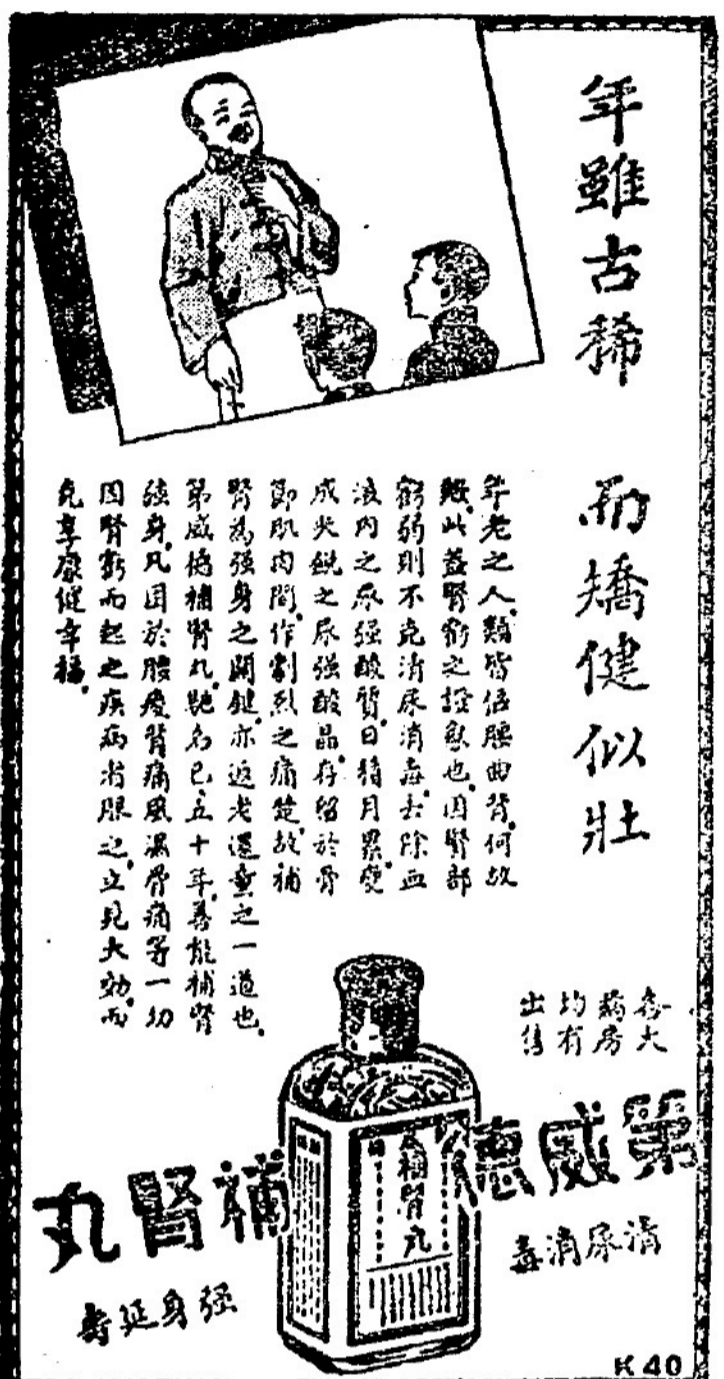 年雖古稀
而矯健似壯
年老之人，類皆傴腰曲背，何故
歟，此蓋腎虧之證象也，因腎部
虧弱則不克清尿消毒，去除血
液內之尿强酸質，日積月累，變
成尖銳之尿强酸晶，存留於骨
節肌肉間，作劇烈之痛楚，故補
腎為强身之關鍵，亦返老還童之一道也。
第威德補腎丸，馳名已五十年，善能補腎
强身，凡因於腰痠背痛風濕骨痛等一切
因腎虧而起之疾病者服之，立見大効，而
克享康健幸福。
各大
药房
均有
出售
第威德補腎丸
清尿消毒
强身延壽
補腎丸
K 40